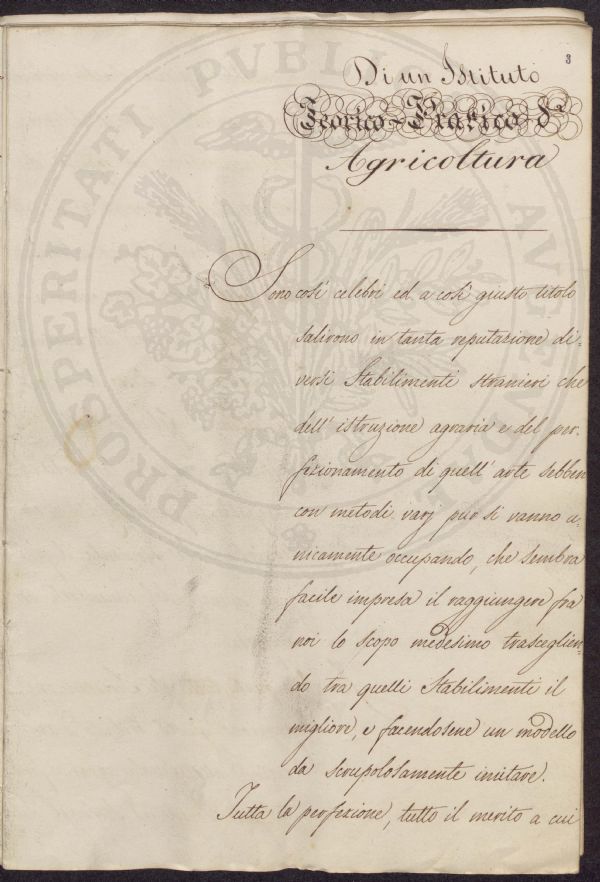 3
Di un Istituto
Teorico-Pratico d'
Agricoltura
Sono così celebri ed a così giusto titolo
salirono in tanta reputazione di-
versi Stabilimenti stranieri che
dell' istruzione agraria e del per-
fezionamento di quell' arte sebben
con metodi varj pur si vanno u-
nicamente occupando, che sembra
facile impresa il raggiungere fra
noi lo scopo medesimo trasceglien-
do tra quelli Stabilimenti il
migliore, e facendosene un modello
da scrupolosamente imitare.
Tutta la perfezione, tutto il merito a cui
PROSPERITATI PUBLICAE AUGENDAE